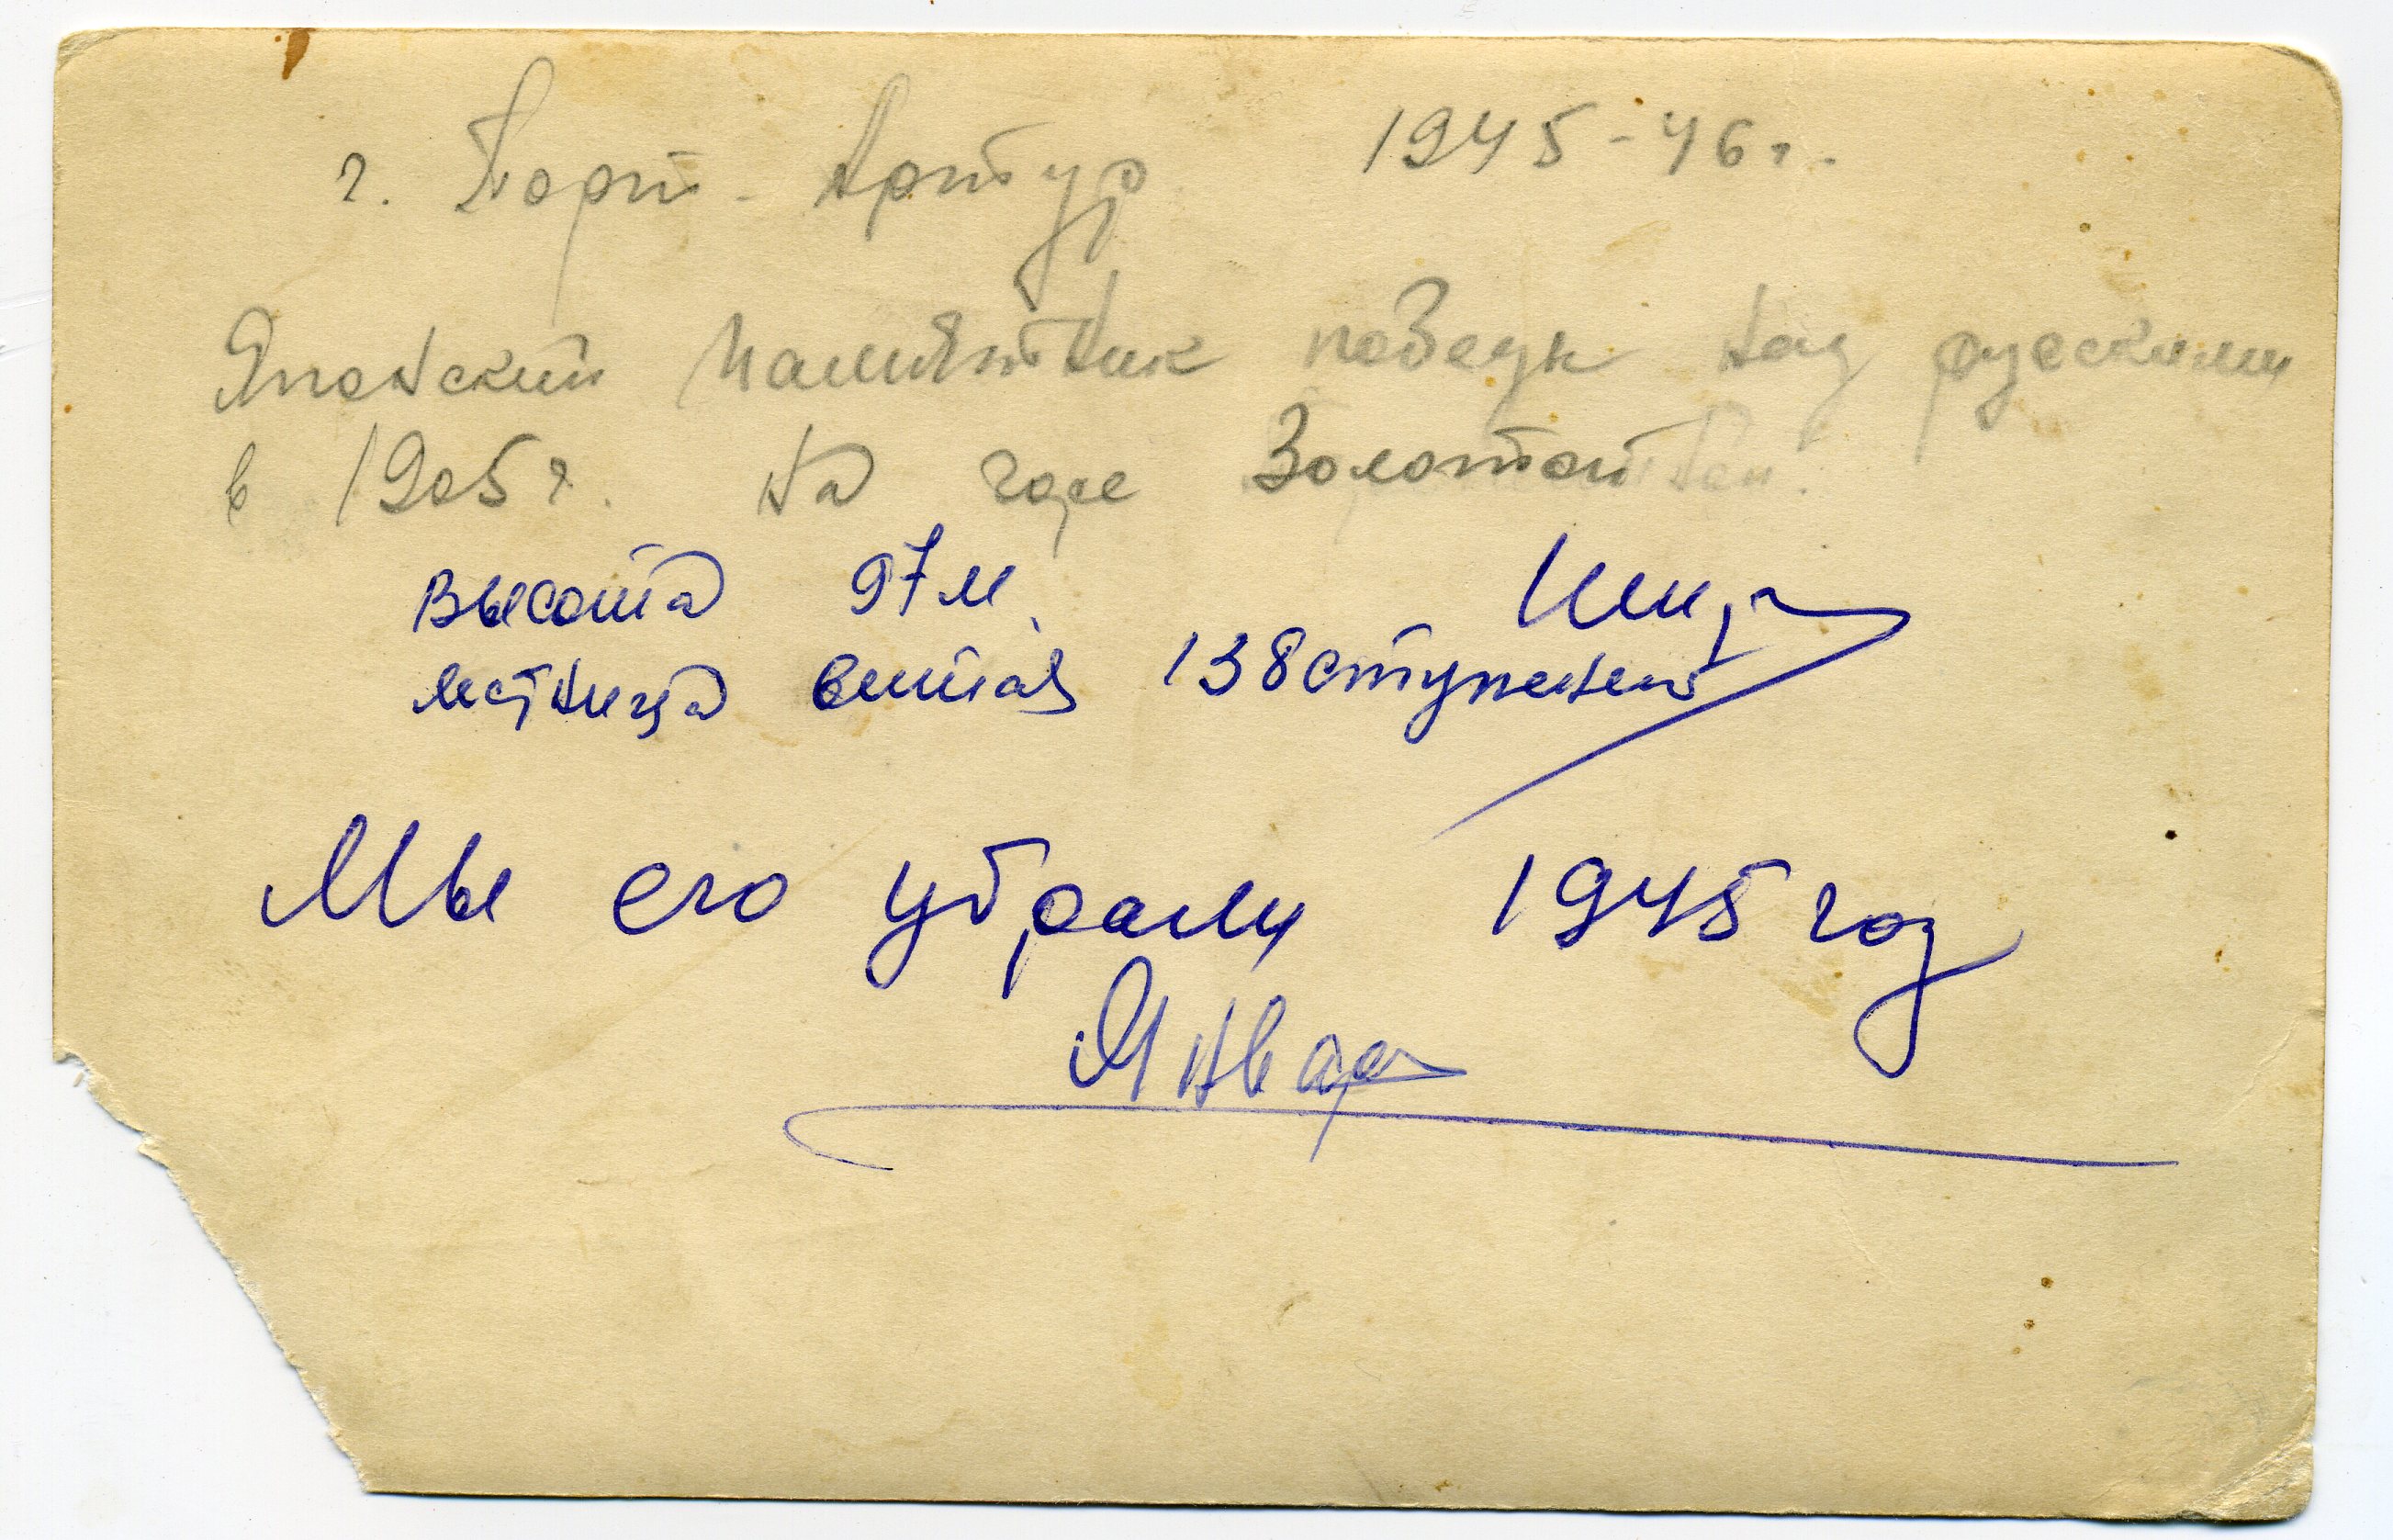 г. Порт-Артур 1945-46 г.
Японский памятник победы над русскими
в 1905 г. на горе Золотой
высота 97 м.
лестница витая 138 ступеней
Мы его убрали 1945 год
Января